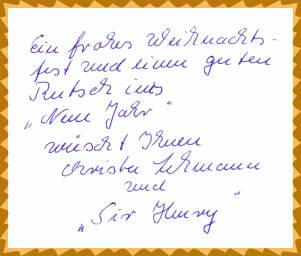 Ein frohes Weihnachts-
fest und einen guten
Rutsch ins
„Neue Jahr“
wünscht Ihnen
Christa Lehmann
und
„Sir Henry“